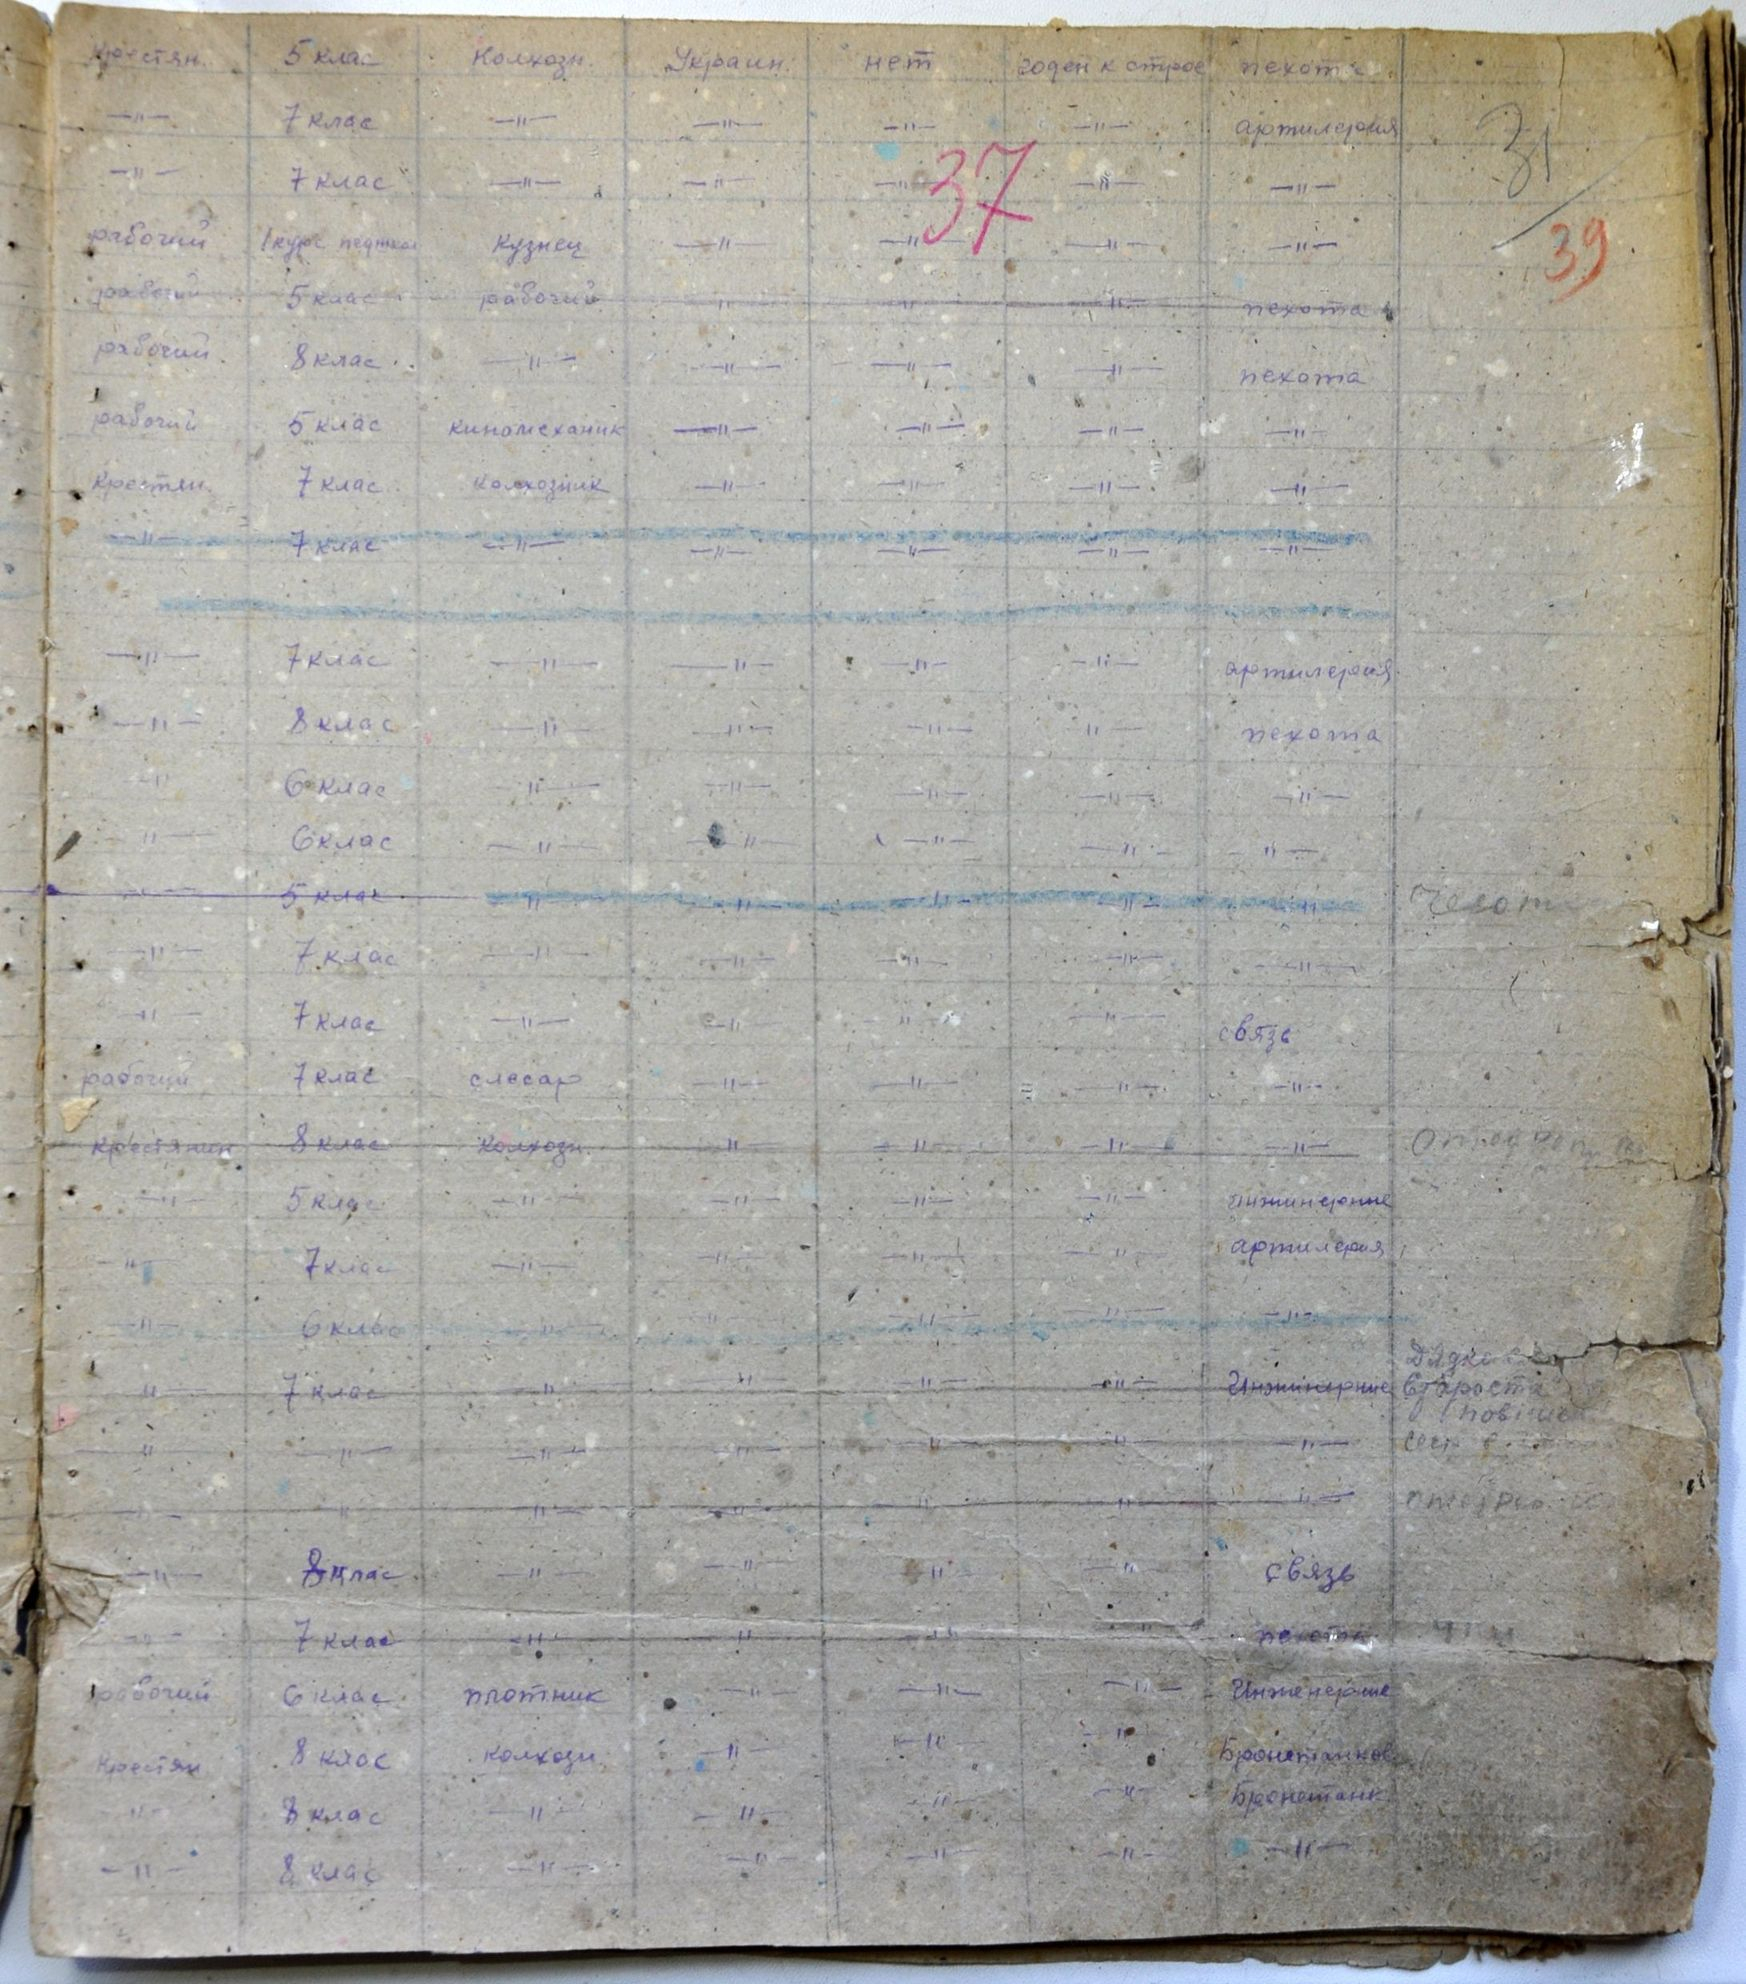 крестян. 5 клас Колхозн. Украин. нет годен к строе пехота
—"— 7 клас —"— —"— —"— —"— артилерия 31
—"— 7 клас —"— —"— —"— —"— —"—
37
рабочий 1 курс кузнец —"— —"— —"— —"— 39
рабочий 5 клас рабочий —"— —"— —"— пехота
рабочий 8 клас —"— —"— —"— —"— пехота
рабочий 5 клас киномеханик —"— —"— —"— —"—
крестян. 7 клас колхозник —"— —"— —"— —"—
—"— 7 клас —"— —"— —"— —"— —"—
—"— 7 клас —"— —"— —"— —"— артилерия
—"— 8 клас —"— —"— —"— —"— пехота
—"— 6 клас —"— —"— —"— —"— —"—
—"— 6 клас —"— —"— —"— —"— —"—
—"— 5 клас —"— —"— —"— —"— —"—
—"— 7 клас —"— —"— —"— —"— —"—
—"— 7 клас —"— —"— —"— —"— связь
рабочий 7 клас слесар —"— —"— —"— —"—
крестянин 8 клас колхозн. —"— —"— —"— —"—
—"— 5 клас —"— —"— —"— —"— инжинерные
—"— 7 клас —"— —"— —"— —"— артилерия
—"— 6 клас —"— —"— —"— —"— —"—
—"— 7 клас —"— —"— —"— —"— Инжинерные Староста
—"— —"— —"— —"— —"— —"— —"—
—"— —"— —"— —"— —"— —"— —"—
—"— 8 клас —"— —"— —"— —"— связь
—"— 7 клас —"— —"— —"— —"— пехота
рабочий 6 клас плотник —"— —"— —"— Инженерные
Крестян 8 клас колхозн —"— —"— —"— Бронетанков
—"— 8 клас —"— —"— —"— —"— Бронетанк.
—"— 8 клас —"— —"— —"— —"— —"—